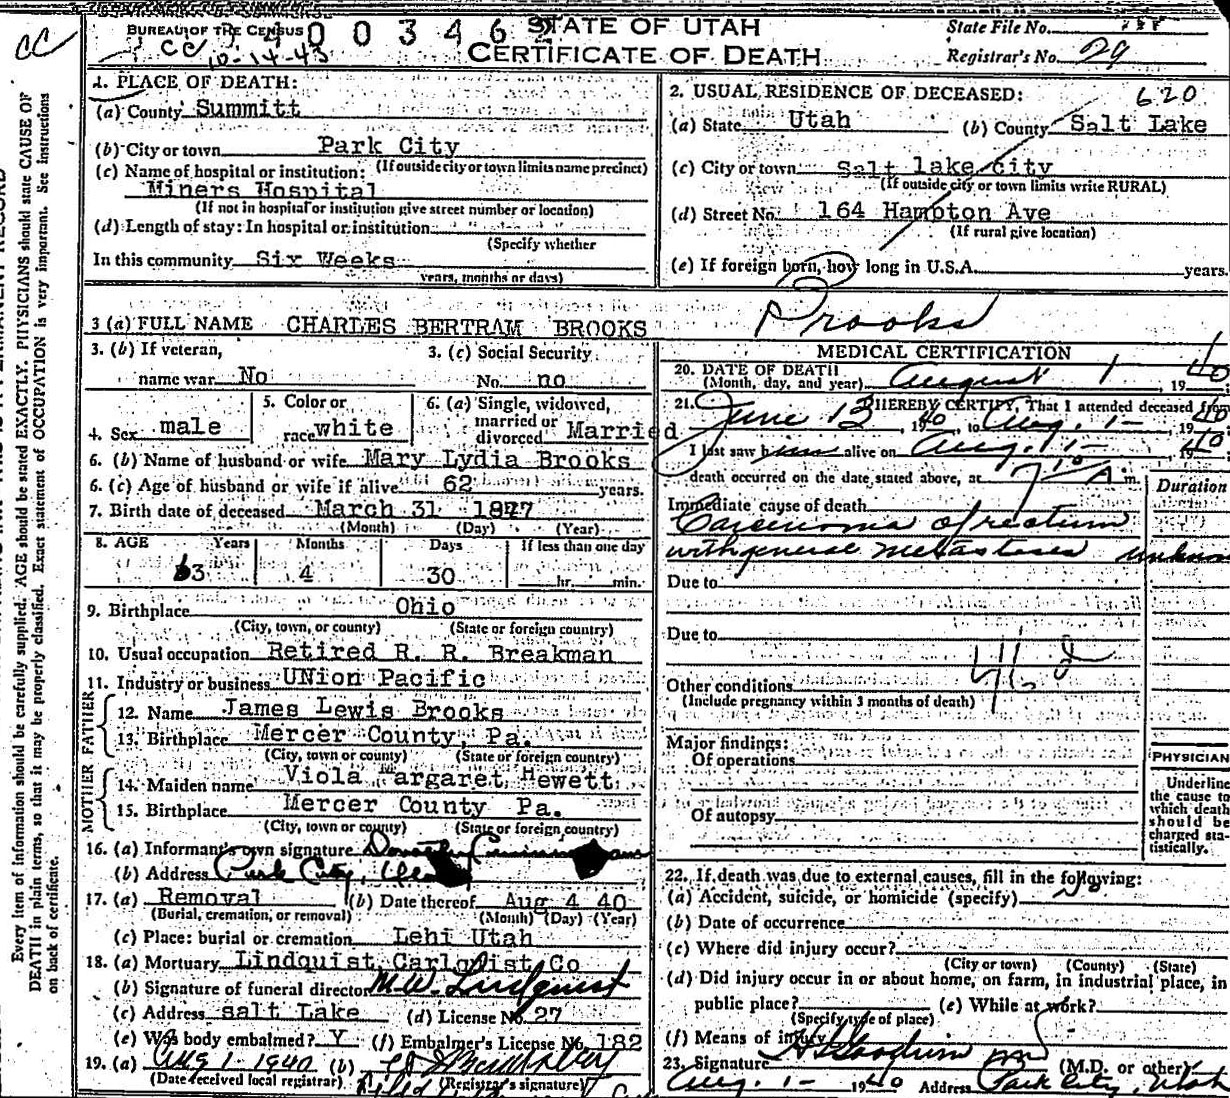 BUREAU OF THE CENSUS
STATE OF UTAH
CERTIFICATE OF DEATH
State File No.
Registrar's No. 29
CC
CC 10-14-43
1. PLACE OF DEATH:
(a) County Summitt
(b) City or town Park City
(If outside city or town limits name precinct)
(c) Name of hospital or institution:
Miners Hospital
(If not in hospital or institution give street number or location)
(d) Length of stay: In hospital or institution
(Specify whether
In this community Six Weeks
years, months or days)
2. USUAL RESIDENCE OF DECEASED: 620
(a) State Utah (b) County Salt Lake
(c) City or town Salt lake city
(If outside city or town limits write RURAL)
(d) Street No. 164 Hampton Ave
(If rural give location)
(e) If foreign born, how long in U.S.A. years.
3 (a) FULL NAME CHARLES BERTRAM BROOKS
Brooks
3. (b) If veteran,
name war No
3. (c) Social Security
No. no
4. Sex male
5. Color or
race white
6. (a) Single, widowed,
married or
divorced Married
6. (b) Name of husband or wife Mary Lydia Brooks
6. (c) Age of husband or wife if alive 62 years.
7. Birth date of deceased March 31 1877
(Month) (Day) (Year)
8. AGE Years Months Days If less than one day
63 4 30 hr. min.
9. Birthplace Ohio
(City, town, or county) (State or foreign country)
10. Usual occupation Retired R. R. Breakman
11. Industry or business UNion Pacific
FATHER
12. Name James Lewis Brooks
13. Birthplace Mercer County, Pa.
(City, town or county) (State or foreign country)
MOTHER
14. Maiden name Viola Margaret Hewett
15. Birthplace Mercer County Pa.
(City, town or county) (State or foreign country)
16. (a) Informant's own signature Dorothy
(b) Address Park City, Utah
17. (a) Removal (b) Date thereof Aug 4 40
(Burial, cremation, or removal) (Month) (Day) (Year)
(c) Place: burial or cremation Lehi Utah
18. (a) Mortuary Lindquist Carlquist Co
(b) Signature of funeral director M.W. Lindquist
(c) Address salt Lake (d) License No. 27
(e) Was body embalmed? Y (f) Embalmer's License No. 182
19. (a) Aug 1-1940 (b)
(Date received local registrar) (Registrar's signature)
MEDICAL CERTIFICATION
20. DATE OF DEATH
(Month, day, and year) August 1, 1940
21. I HEREBY CERTIFY, That I attended deceased from
June 13, 1940, to Aug. 1-, 1940
I last saw him alive on Aug. 1-, 1940
death occurred on the date stated above, at 7 10 A. m.
Immediate cause of death Duration
Carcinoma of rectum
with general metastases unknown
Due to
Due to
46 d
Other conditions
(Include pregnancy within 3 months of death)
Major findings:
Of operations
Of autopsy
PHYSICIAN
Underline
the cause to
which death
should be
charged sta-
tistically.
22. If death was due to external causes, fill in the following:
(a) Accident, suicide, or homicide (specify) No
(b) Date of occurrence
(c) Where did injury occur?
(City or town) (County) (State)
(d) Did injury occur in or about home, on farm, in industrial place, in
public place? (e) While at work?
(Specify type of place)
(f) Means of injury
23. Signature (M.D. or other)
Aug. 1- 1940 Address Park City, Utah
Every item of information should be carefully supplied. AGE should be stated EXACTLY. PHYSICIANS should state CAUSE OF
DEATH in plain terms, so that it may be properly classified. Exact statement of OCCUPATION is very important. See instructions
on back of certificate.